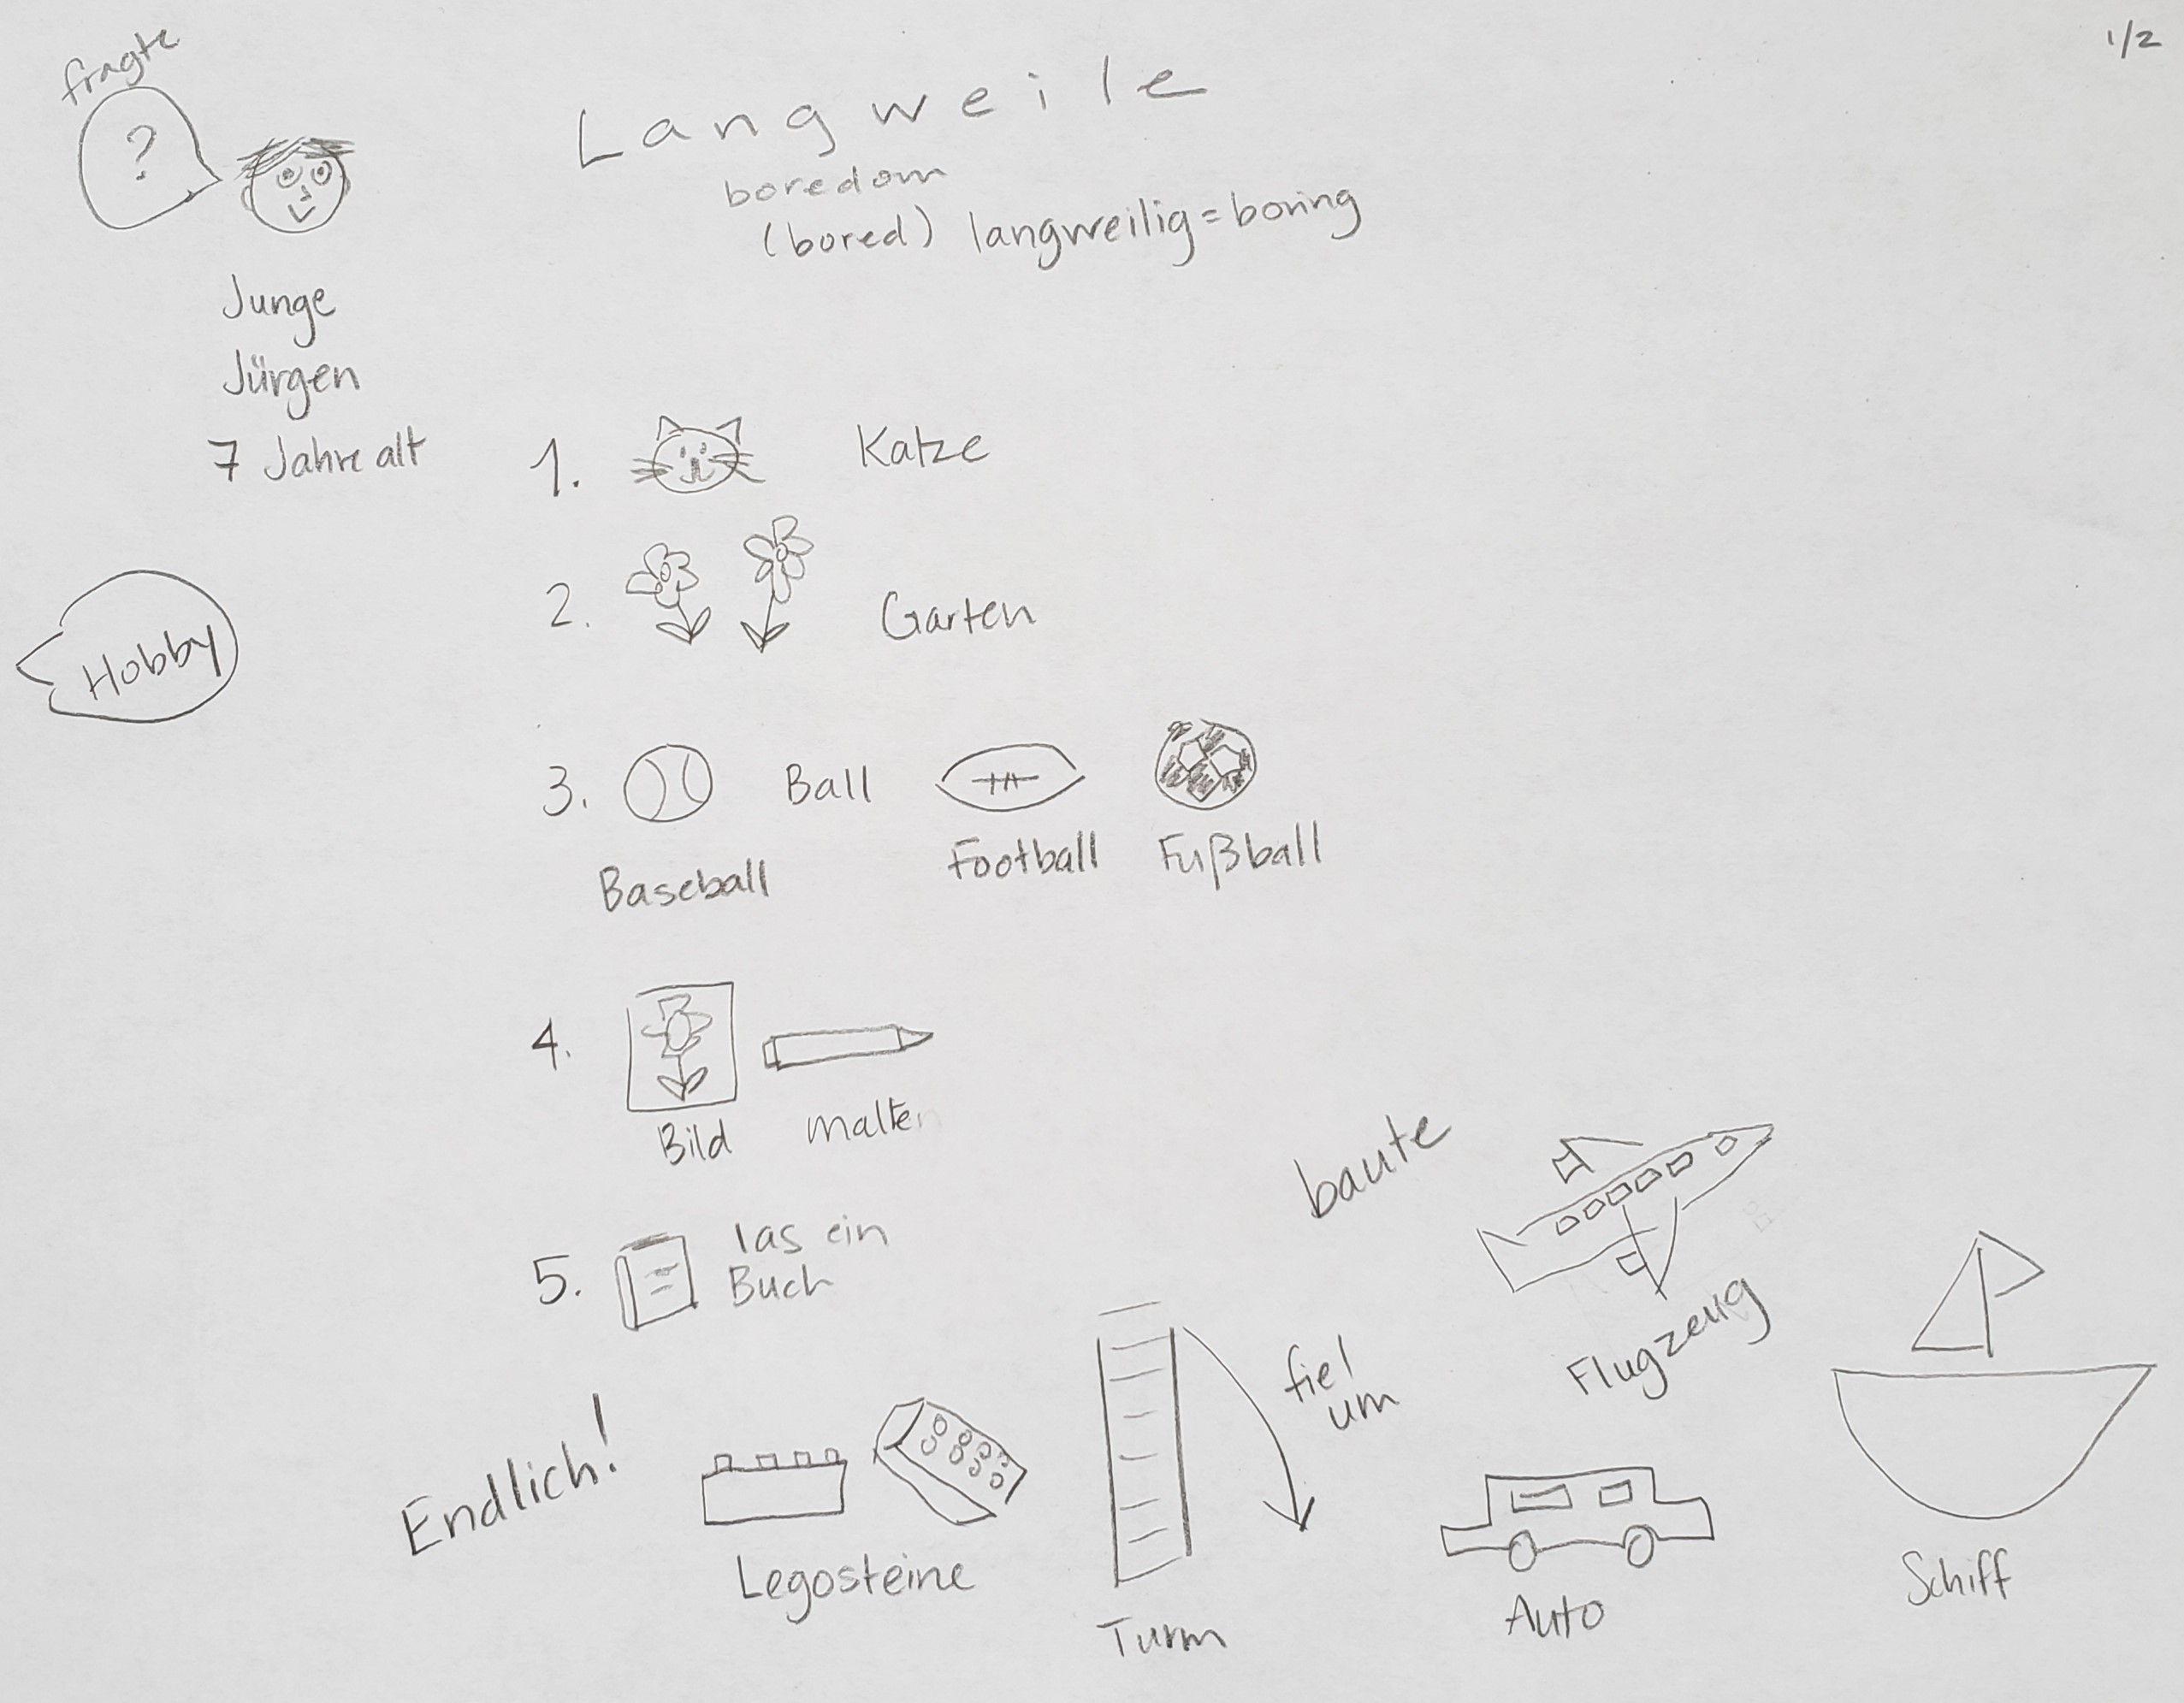 1/2
fragte
?
Langweile
boredom
(bored) langweilig = boring
Junge
Jürgen
7 Jahre alt
1. Katze
2. Garten
Hobby
3. Ball
Baseball Football Fußball
4.
Bild malten
5. las ein
Buch
baute
Flugzeug
fiel
um
Endlich!
Legosteine
Turm
Auto
Schiff